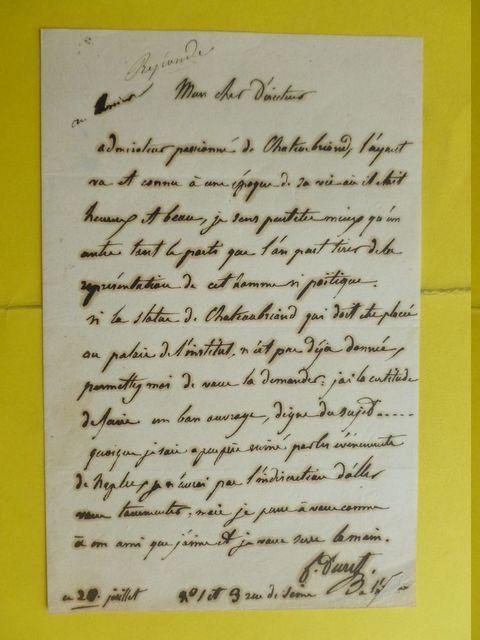 Répondu
Mon cher Directeur
admirateur passionné de Chateaubriand, l'ayant
vu et connu à une époque de sa vie où il était
heureux et beau, je sens peutetre mieux qu'un
autre tout le parti que l'on peut tirer de la
représentation de cet homme si poëtique.
si la statue de Chateaubriand qui doit être placée
au palais de l'institut, n'est pas déja donnée,
permettez moi de vous la demander: j'ai la certitude
de faire un bon ouvrage, digne du sujet.....
quoique je sois apeuprès ruiné par les événements
de Naples, je n'aurai pas l'indiscretion d'aller
vous tourmenter, mais je pense à vous comme
à un ami que j'aime et je vous serre la main.
f. Duret
ce 20 juillet nos 1 et 3 rue de seine